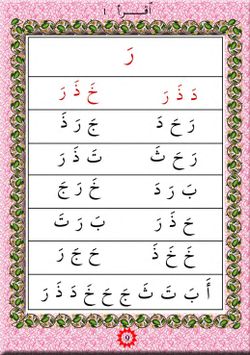 اقرأ ١
رَ
دَ ذَ رَ خَ ذَ رَ
رَ حَ دَ جَ رَ ذَ
رَ حَ ثَ تَ ذَ رَ
بَ رَ دَ خَ رَ جَ
حَ ذَ رَ بَ رَ تَ
خَ خَ ذَ حَ جَ رَ
أَ بَ تَ ثَ جَ حَ خَ دَ ذَ رَ
٩